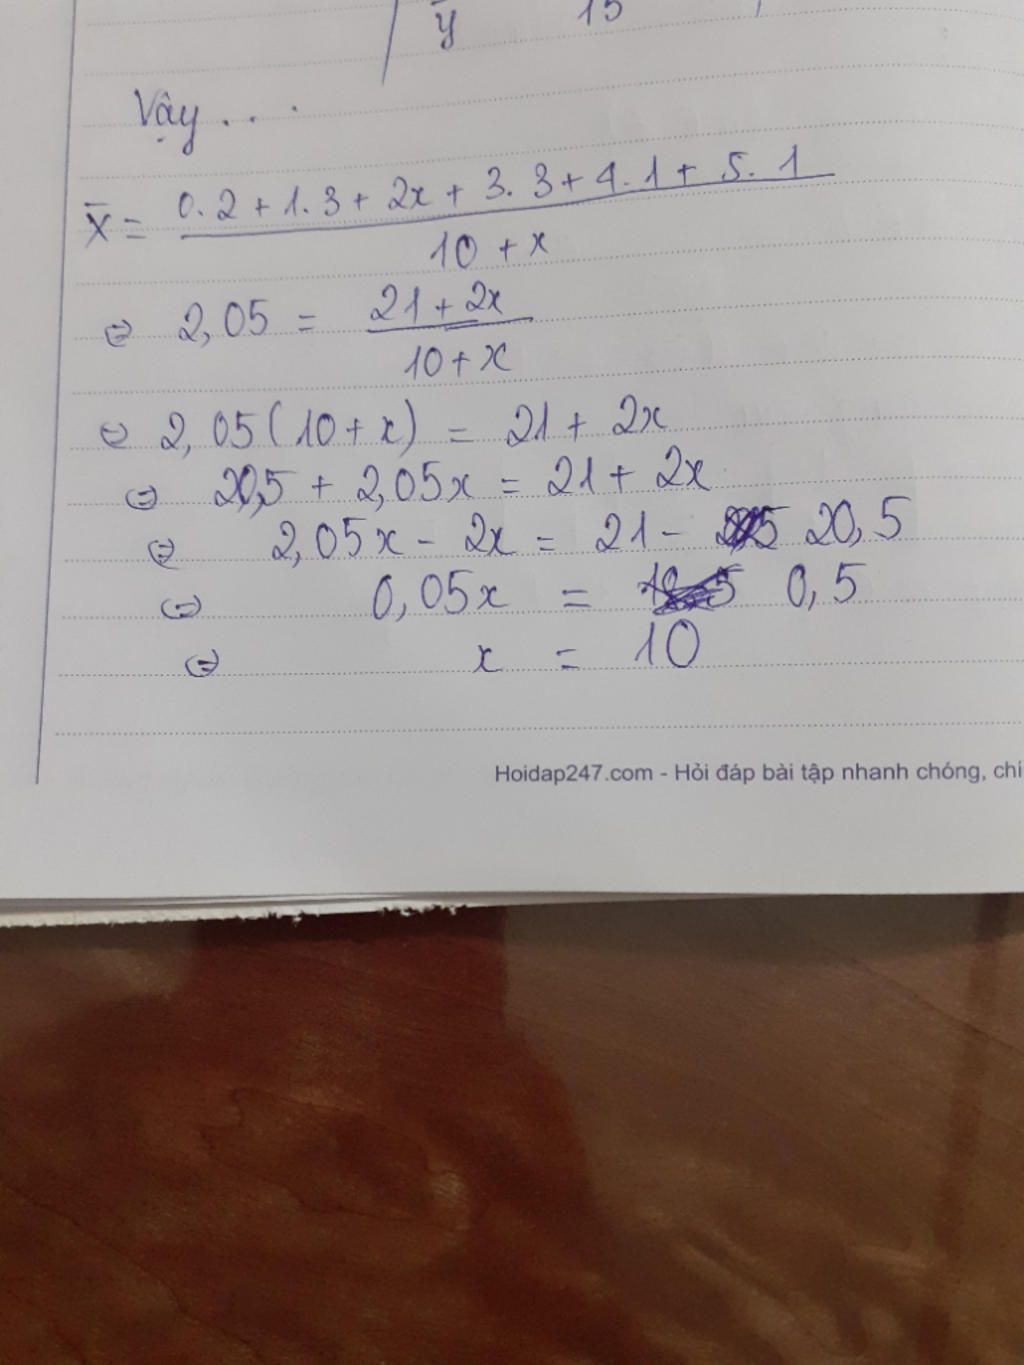 y 15
Vậy ...
X̄ = 0.2 + 1.3 + 2x + 3.3 + 4.1 + 5.1
10 + x
⇔ 2,05 = 21 + 2x
10 + x
⇔ 2,05(10 + x) = 21 + 2x
⇔ 20,5 + 2,05x = 21 + 2x
⇔ 2,05x - 2x = 21 - 20,5
⇔ 0,05x = 0,5
⇔ x = 10
Hoidap247.com - Hỏi đáp bài tập nhanh chóng, chí